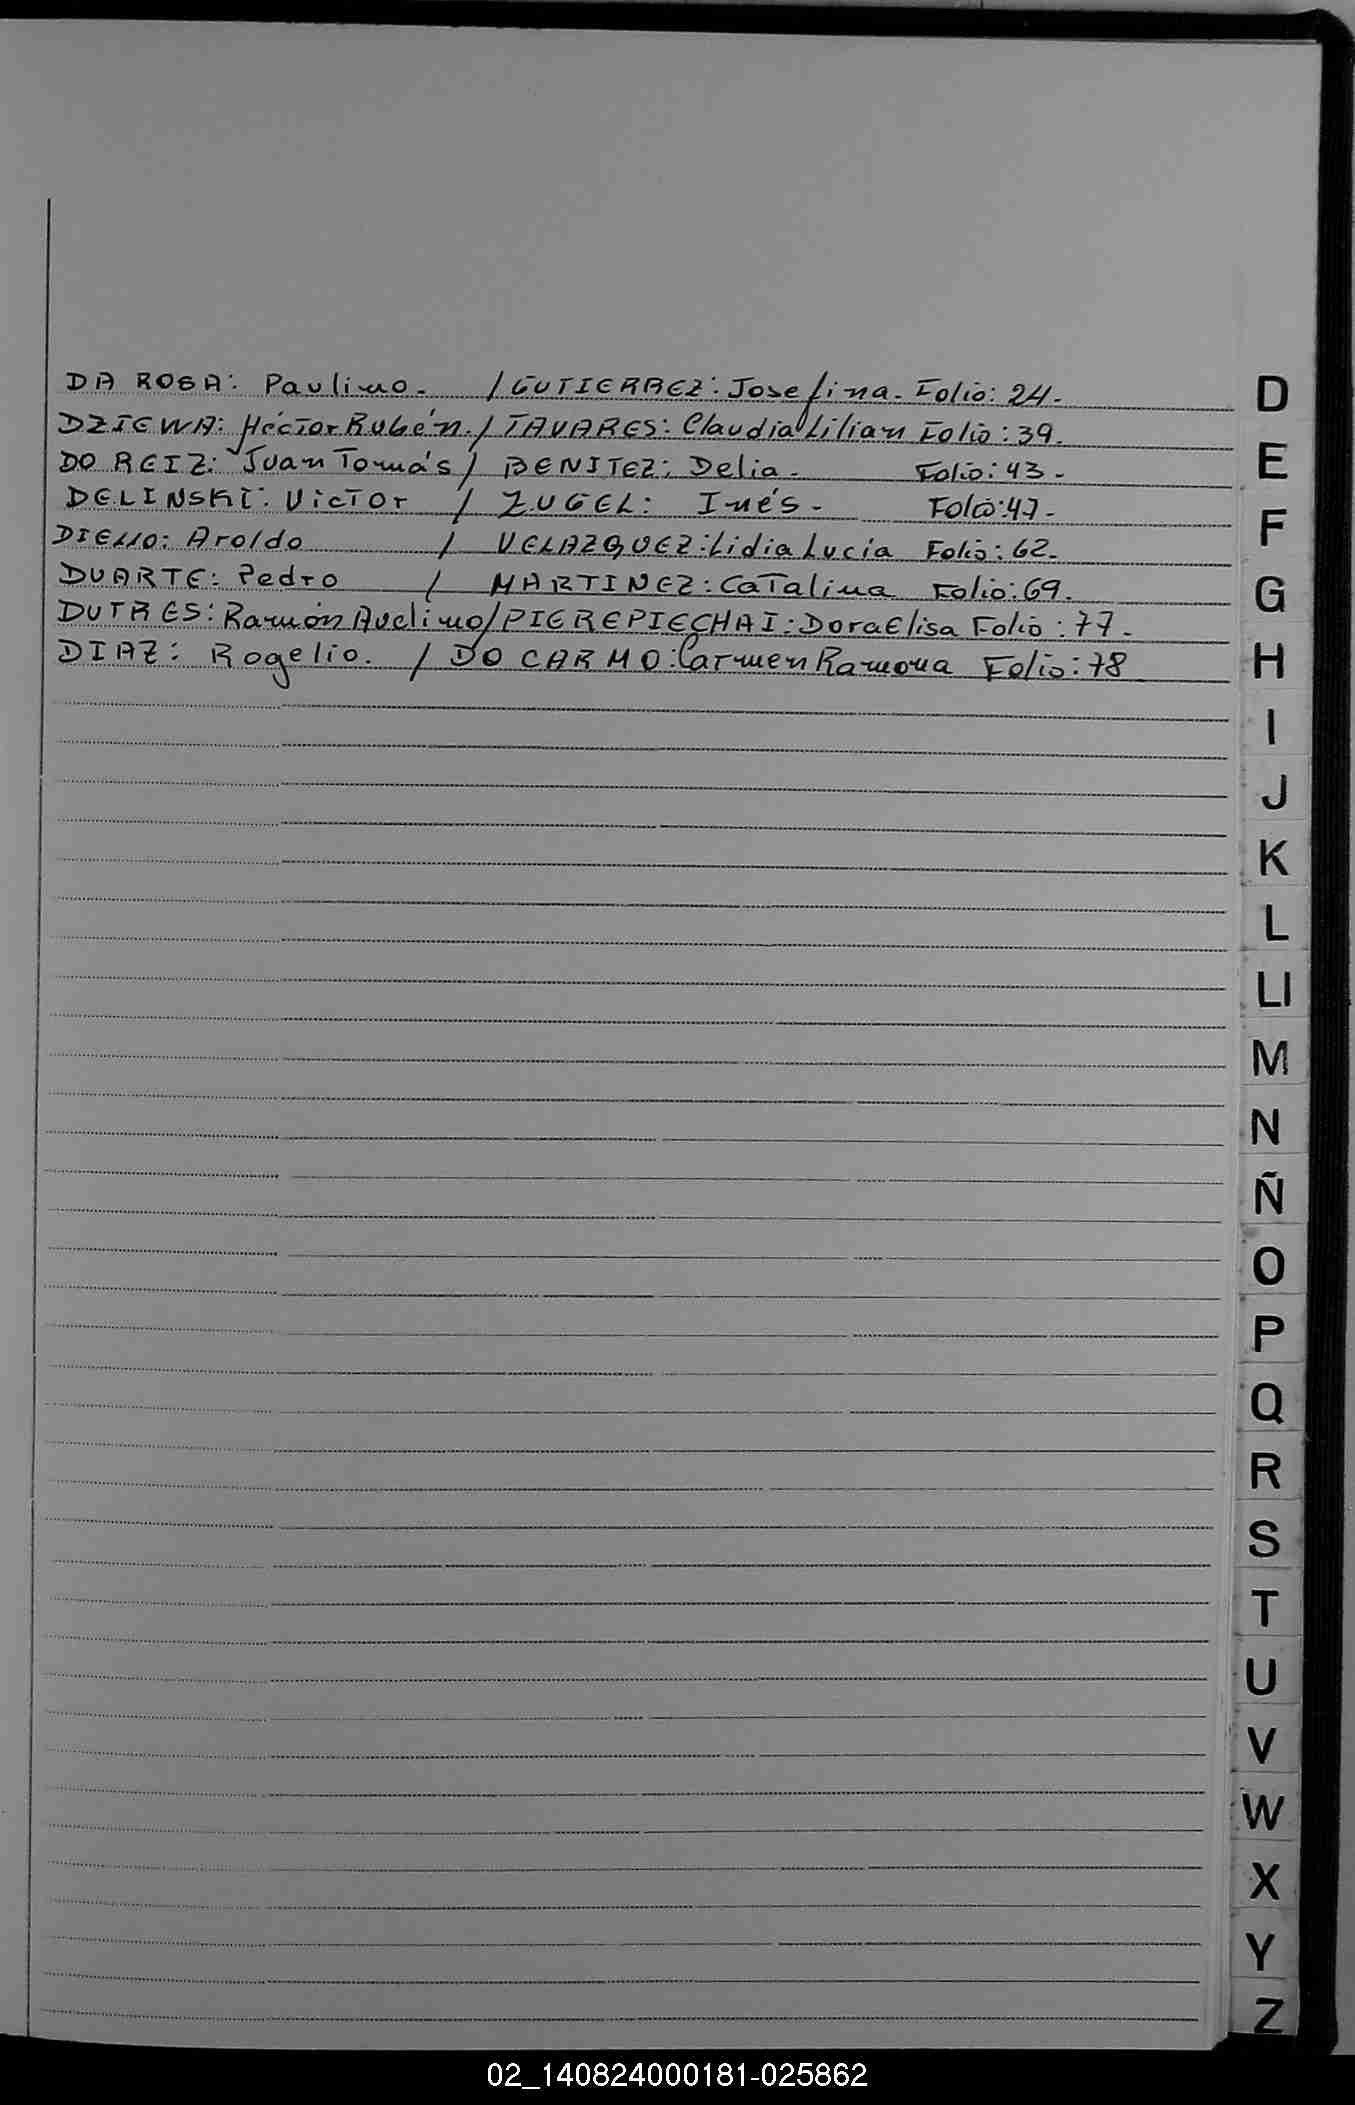 DA ROSA: Paulino. / GUTIERREZ: Josefina. Folio: 24.
DZIEWA: Héctor Rubén. / TAVARES: Claudia Lilian Folio: 39.
DO REIZ: Juan Tomás / BENITEZ: Delia. Folio: 43.
DELINSKI: Victor / ZUGEL: Inés. Folio: 47.
Aroldo / VELAZQUEZ: Lidia Lucía Folio: 62.
DUARTE: Pedro / MARTINEZ: Catalina Folio: 69.
DUTRES: Ramón Avelino / PIEREPIECHAI: Dora Elisa Folio: 77.
DIAZ: Rogelio. / DO CARMO: Carmen Ramona Folio: 78
D
E
F
G
H
I
J
K
L
Ll
M
N
Ñ
O
P
Q
R
S
T
U
V
W
X
Y
Z
02_140824000181-025862